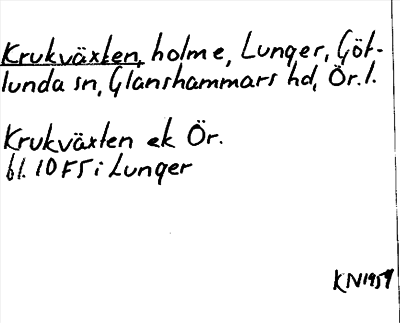 Krukväxten, holme, Lunger, Göt-
lunda sn, Glanshammars hd, Ör. l.
Krukväxten ek Ör.
bl. 10 F5 i Lunger
KN 1959